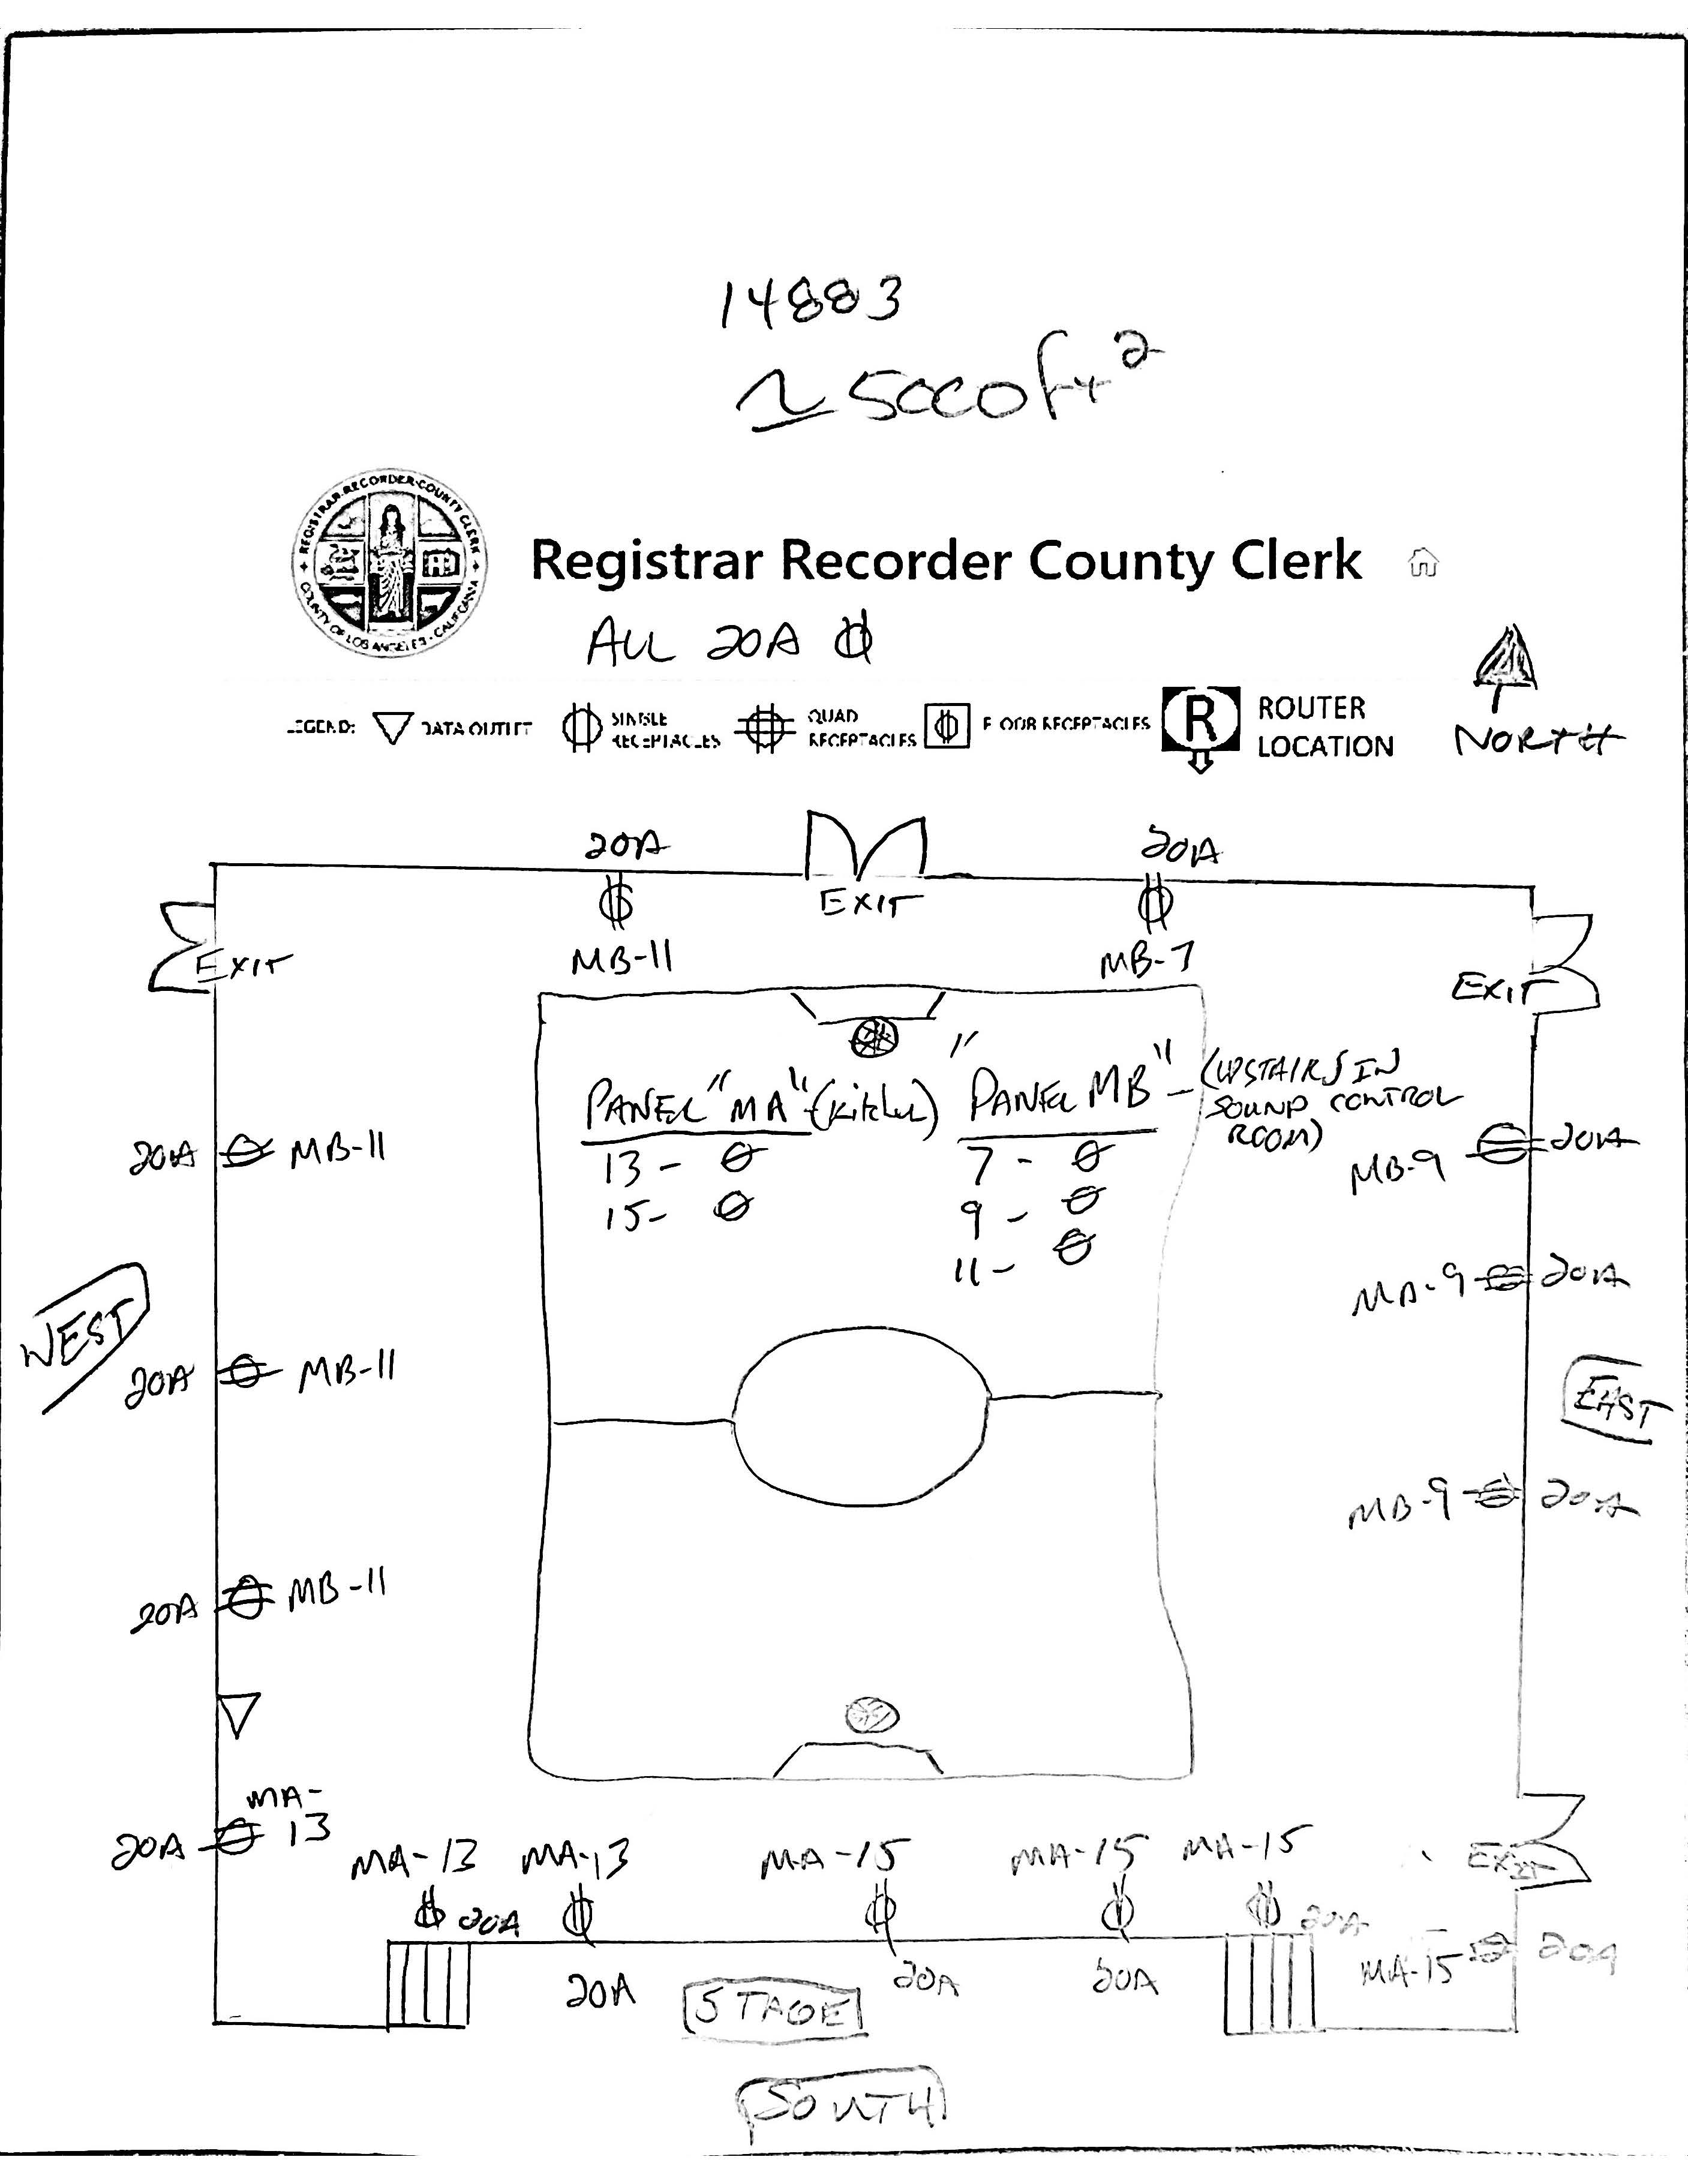 14883
≃ 5000 ft²
REGISTRAR-RECORDER-COUNTY CLERK
COUNTY OF LOS ANGELES - CALIFORNIA
Registrar Recorder County Clerk
ALL 20A
LEGEND: DATA OUTLET SINGLE RECEPTACLES QUAD RECEPTACLES FLOOR RECEPTACLES R ROUTER LOCATION
NORTH
20A
20A
EXIT
EXIT
MB-11
MB-7
EXIT
PANEL "MA" (kitchen)
13 -
15 -
"PANEL MB" - (UPSTAIRS IN
SOUND CONTROL
ROOM)
7 -
9 -
11 -
20A MB-11
MB-9 20A
MA-9 20A
WEST
20A MB-11
EAST
MB-9 20A
20A MB-11
MA-
20A 13
MA-13
MA-13
MA-15
MA-15
MA-15
EXIT
20A
20A
20A
20A
20A
MA-15 20A
STAGE
SOUTH